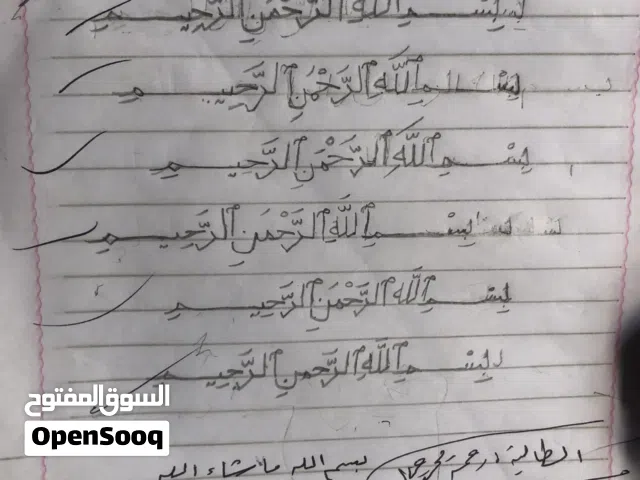 بِسْمِ ٱللَّهِ ٱلرَّحْمَنِ ٱلرَّحِيمِ
بِسْمِ ٱللَّهِ ٱلرَّحْمَنِ ٱلرَّحِيمِ
بِسْمِ ٱللَّهِ ٱلرَّحْمَنِ ٱلرَّحِيمِ
بِسْمِ ٱللَّهِ ٱلرَّحْمَنِ ٱلرَّحِيمِ
بِسْمِ ٱللَّهِ ٱلرَّحْمَنِ ٱلرَّحِيمِ
بِسْمِ ٱللَّهِ ٱلرَّحْمَنِ ٱلرَّحِيمِ
السوق المفتوح
OpenSooq
الطالبة
بسم الله ما شاء الله